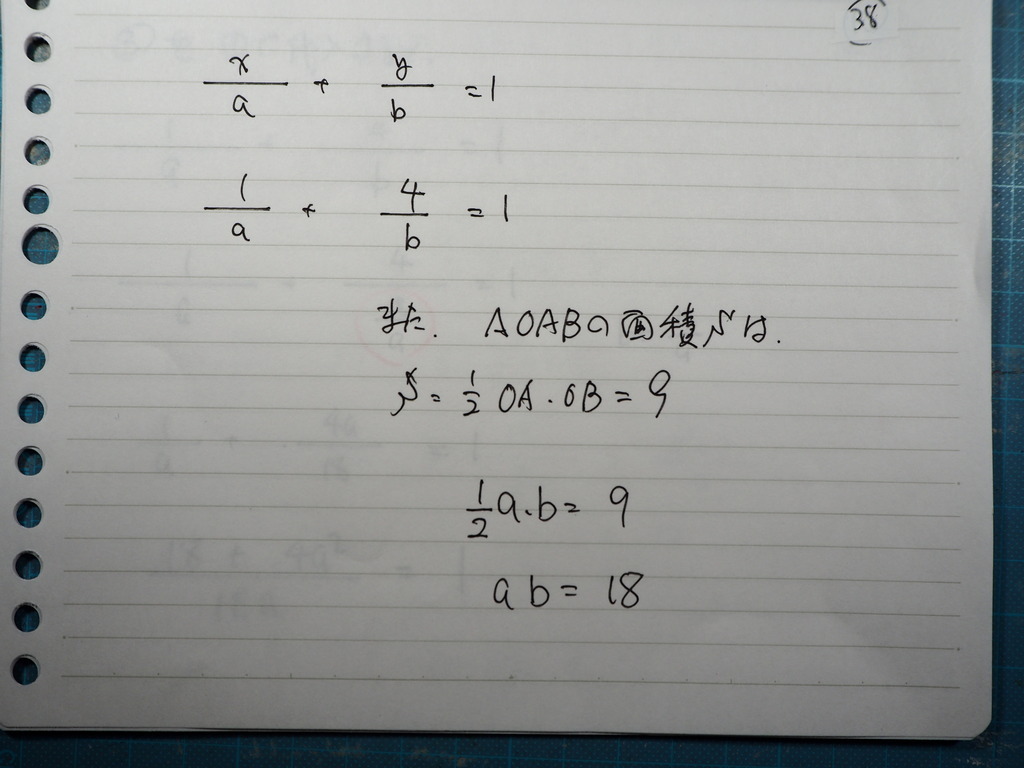 38
x/a + y/b = 1
1/a + 4/b = 1
また. △OABの面積Sは.
S = 1/2 OA・OB = 9
1/2 a・b = 9
ab = 18